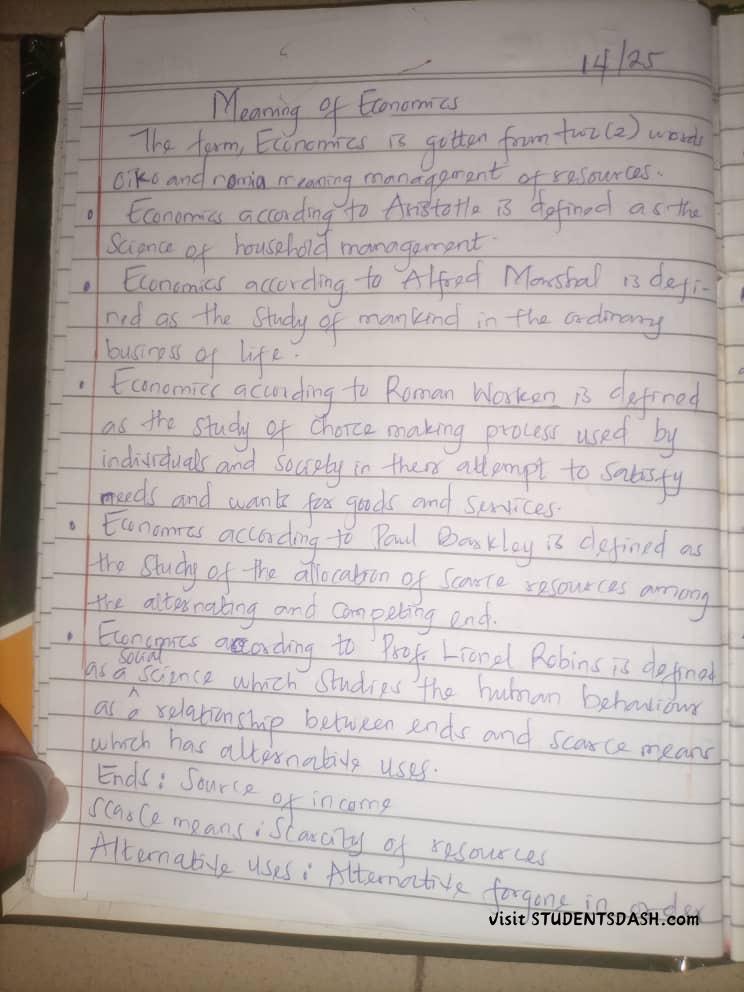 14/25
Meaning of Economics
The term, Economics is gotten from two(2) words
oiko and nomia meaning management of resources.
• Economics according to Aristotle is defined as the
Science of household management.
• Economics according to Alfred Marshal is defi-
ned as the study of mankind in the ordinary
business of life.
• Economics according to Roman Worken is defined
as the study of choice making process used by
individuals and society in their attempt to satisfy
needs and wants for goods and services.
• Economics according to Paul Barkley is defined as
the study of the allocation of scarce resources among
the alternating and competing end.
• Economics according to Prof. Lionel Robins is defined
as a social science which studies the human behaviour
as a relationship between ends and scarce means
which has alternative uses.
Ends: Source of income
Scarce means: Scarcity of resources
Alternative uses: Alternative forgone in order
visit STUDENTSDASH.com